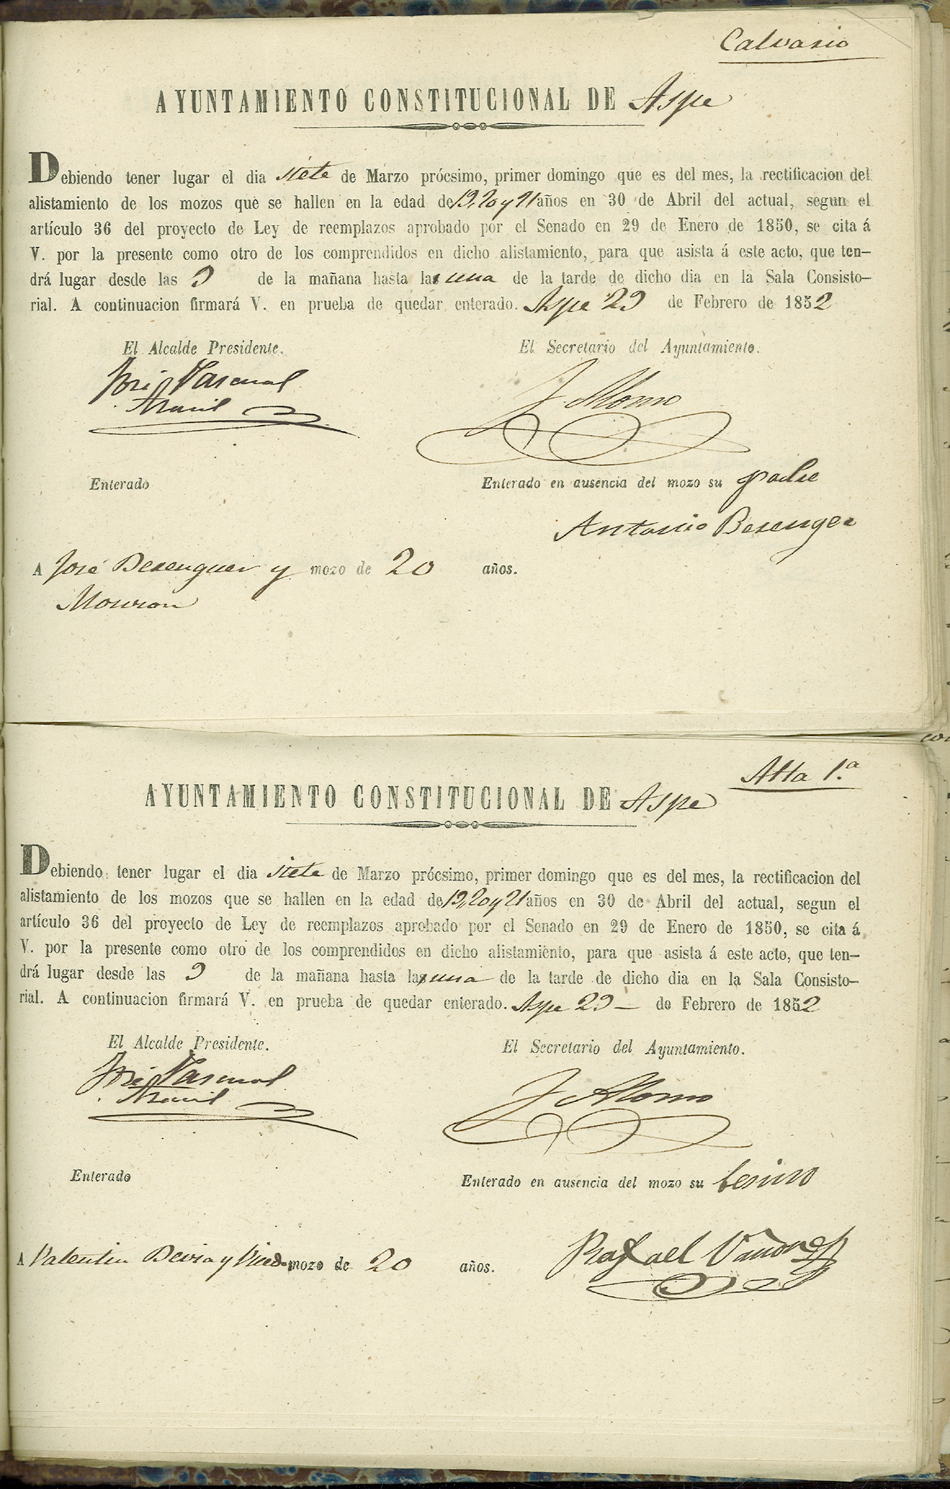 Calvario
AYUNTAMIENTO CONSTITUCIONAL DE Aspe
Debiendo tener lugar el dia siete de Marzo prócsimo, primer domingo que es del mes, la rectificacion del
alistamiento de los mozos que se hallen en la edad de 19, 20 y 21 años en 30 de Abril del actual, segun el
artículo 36 del proyecto de Ley de reemplazos aprobado por el Senado en 29 de Enero de 1850, se cita á
V. por la presente como otro de los comprendidos en dicho alistamiento, para que asista á este acto, que ten–
drá lugar desde las 9 de la mañana hasta la una de la tarde de dicho dia en la Sala Consisto–
rial. A continuacion firmará V. en prueba de quedar enterado. Aspe 29 de Febrero de 1852
El Alcalde Presidente. El Secretario del Ayuntamiento.
José Pascual J. Alonso
Enterado Enterado en ausencia del mozo su padre
Antonio Berenguer
A José Berenguer y mozo de 20 años.
Alta 1.ª
AYUNTAMIENTO CONSTITUCIONAL DE Aspe
Debiendo tener lugar el dia siete de Marzo prócsimo, primer domingo que es del mes, la rectificacion del
alistamiento de los mozos que se hallen en la edad de 19, 20 y 21 años en 30 de Abril del actual, segun el
artículo 36 del proyecto de Ley de reemplazos aprobado por el Senado en 29 de Enero de 1850, se cita á
V. por la presente como otro de los comprendidos en dicho alistamiento, para que asista á este acto, que ten–
drá lugar desde las 9 de la mañana hasta la una de la tarde de dicho dia en la Sala Consisto–
rial. A continuacion firmará V. en prueba de quedar enterado. Aspe 29 – de Febrero de 1852
El Alcalde Presidente. El Secretario del Ayuntamiento.
José Pascual J. Alonso
Enterado Enterado en ausencia del mozo su
A Valentin y mozo de 20 años. Rafael